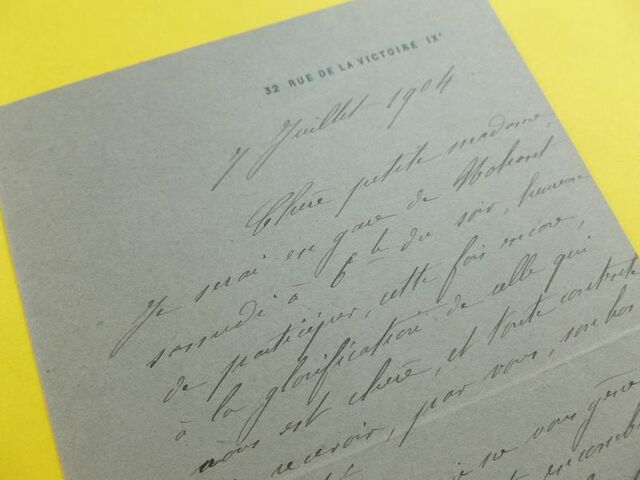 32 RUE DE LA VICTOIRE IXᵉ
7 Juillet 1904
Chère petite madame,
Je serai en gare de Nohant
samedi à 6h du soir, heureuse
de participer, cette fois encore,
à la glorification de celle qui
nous est chère, et toute contente
de recevoir, par vous, son bon
je vous gêne